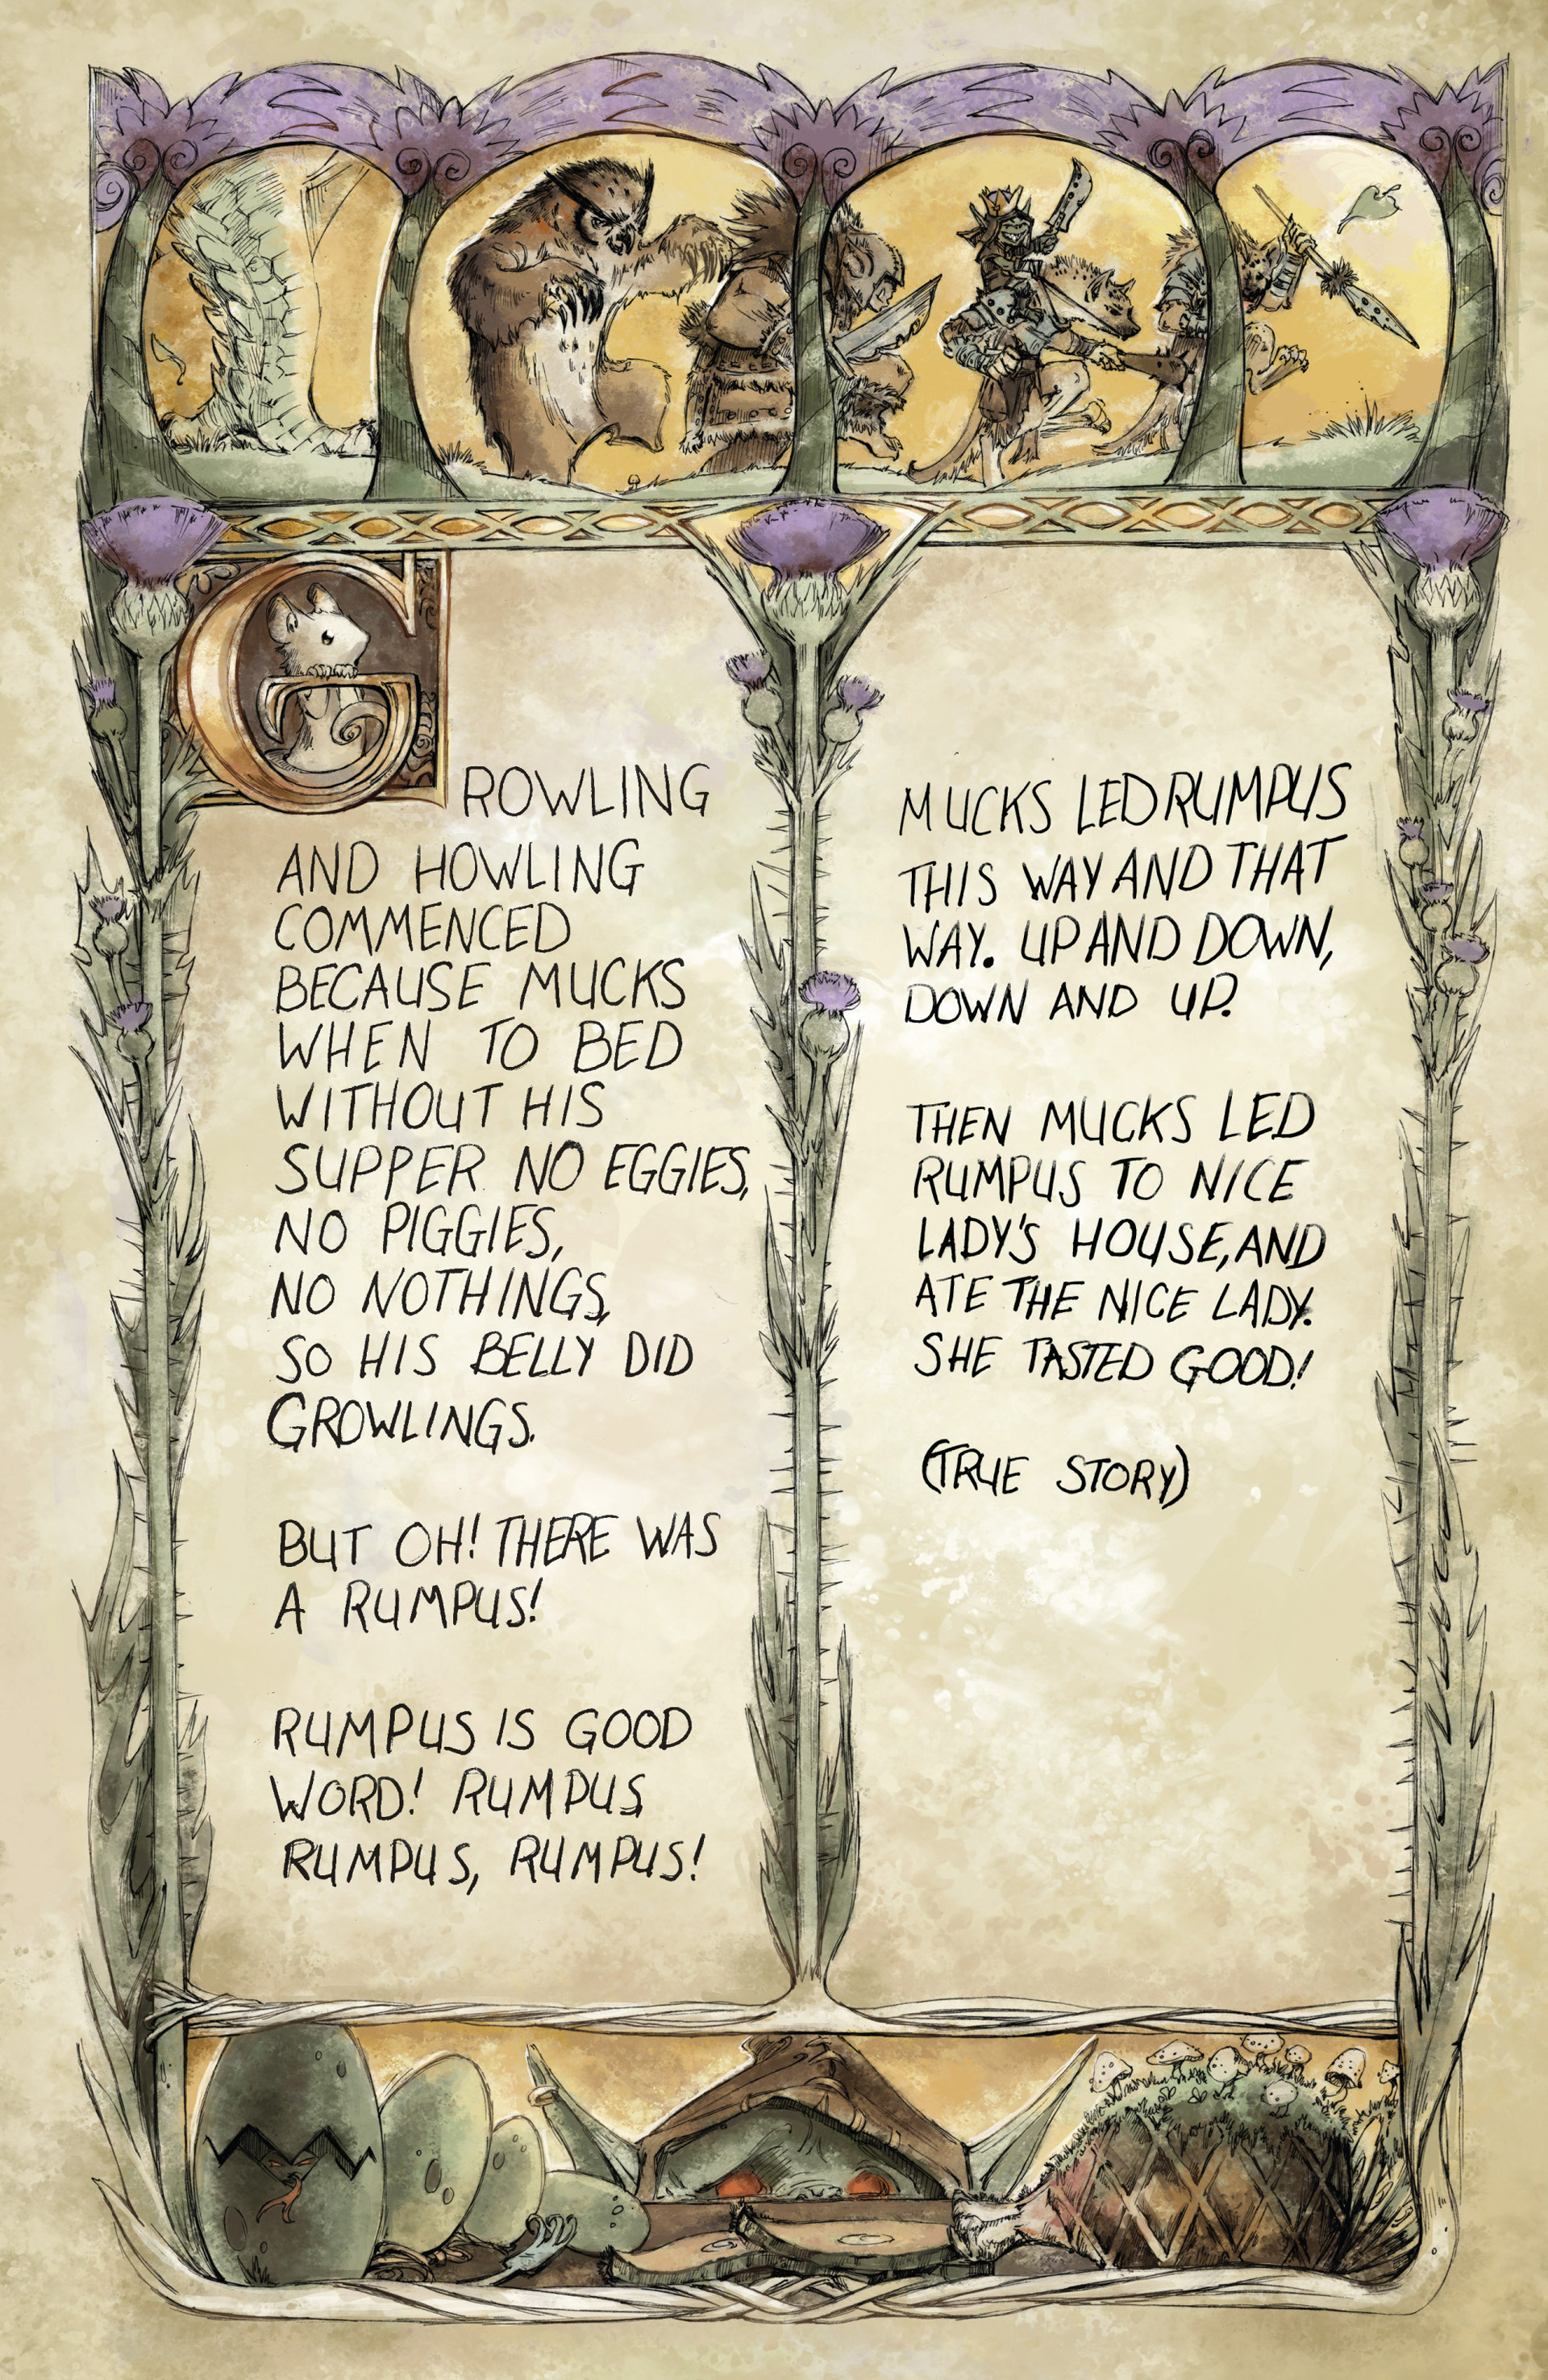 GROWLING
AND HOWLING
COMMENCED
BECAUSE MUCKS
WHEN TO BED
WITHOUT HIS
SUPPER NO EGGIES,
NO PIGGIES,
NO NOTHINGS,
SO HIS BELLY DID
GROWLINGS.
BUT OH! THERE WAS
A RUMPUS!
RUMPUS IS GOOD
WORD! RUMPUS,
RUMPUS, RUMPUS!
MUCKS LED RUMPUS
THIS WAY AND THAT
WAY. UP AND DOWN,
DOWN AND UP.
THEN MUCKS LED
RUMPUS TO NICE
LADY'S HOUSE, AND
ATE THE NICE LADY.
SHE TASTED GOOD!
(TRUE STORY)